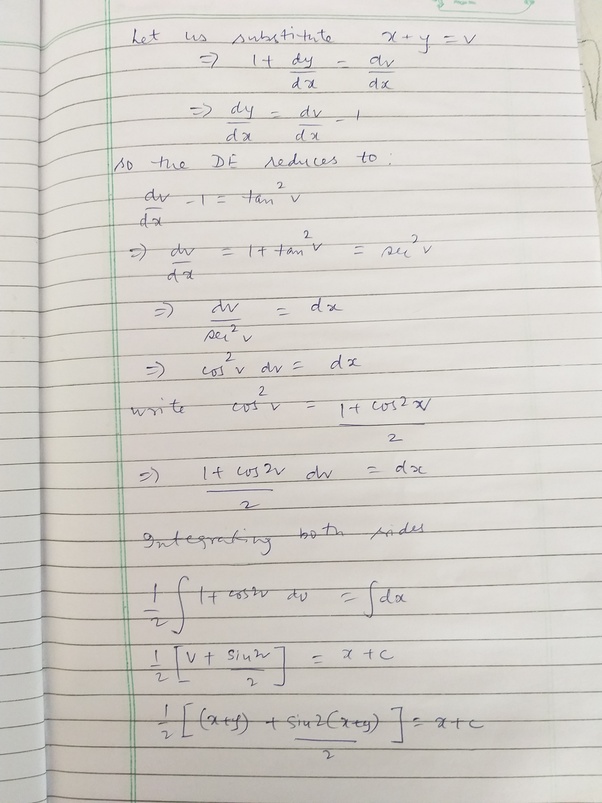 Let us substitute x+y = v
⇒ 1 + dy/dx = dv/dx
⇒ dy/dx = dv/dx - 1
so the DE reduces to :
dv/dx - 1 = tan² v
⇒ dv/dx = 1 + tan² v = sec² v
⇒ dv/sec² v = dx
⇒ cos² v dv = dx
write cos² v = (1 + cos2v)/2
⇒ (1 + cos2v)/2 dv = dx
Integrating both sides
1/2 ∫ 1 + cos2v dv = ∫dx
1/2 [v + sin2v/2] = x + c
1/2 [(x+y) + sin2(x+y)/2] = x + c